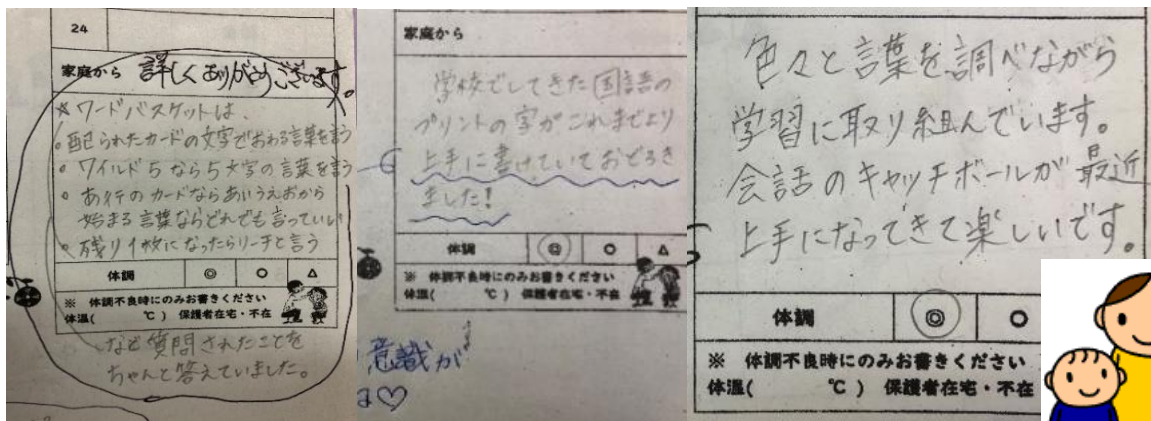 24
家庭から 詳しくありがとうございます。
☆ワードバスケットは、
・配られたカードの文字でおわる言葉を言う
・ワイルド5なら5文字の言葉を言う
・あ行のカードならあいうえおから
始まる言葉ならどれでも言っていい
・残り1枚になったらリーチと言う
体調 ◎ ○ △
※ 体調不良時にのみお書きください
体温( ℃) 保護者在宅・不在
など質問されたことを
ちゃんと答えていました。
家庭から
学校でしてきた国語の
プリントの字がこれまでより
上手に書けていておどろき
ました!
体調 ◎ ○ △
※ 体調不良時にのみお書きください
体温( ℃) 保護者在宅・不在
意識が
♡
色々と言葉を調べながら
学習に取り組んでいます。
会話のキャッチボールが最近
上手になってきて楽しいです。
体調 ◎ ○
※ 体調不良時にのみお書きください
体温( ℃) 保護者在宅・不在